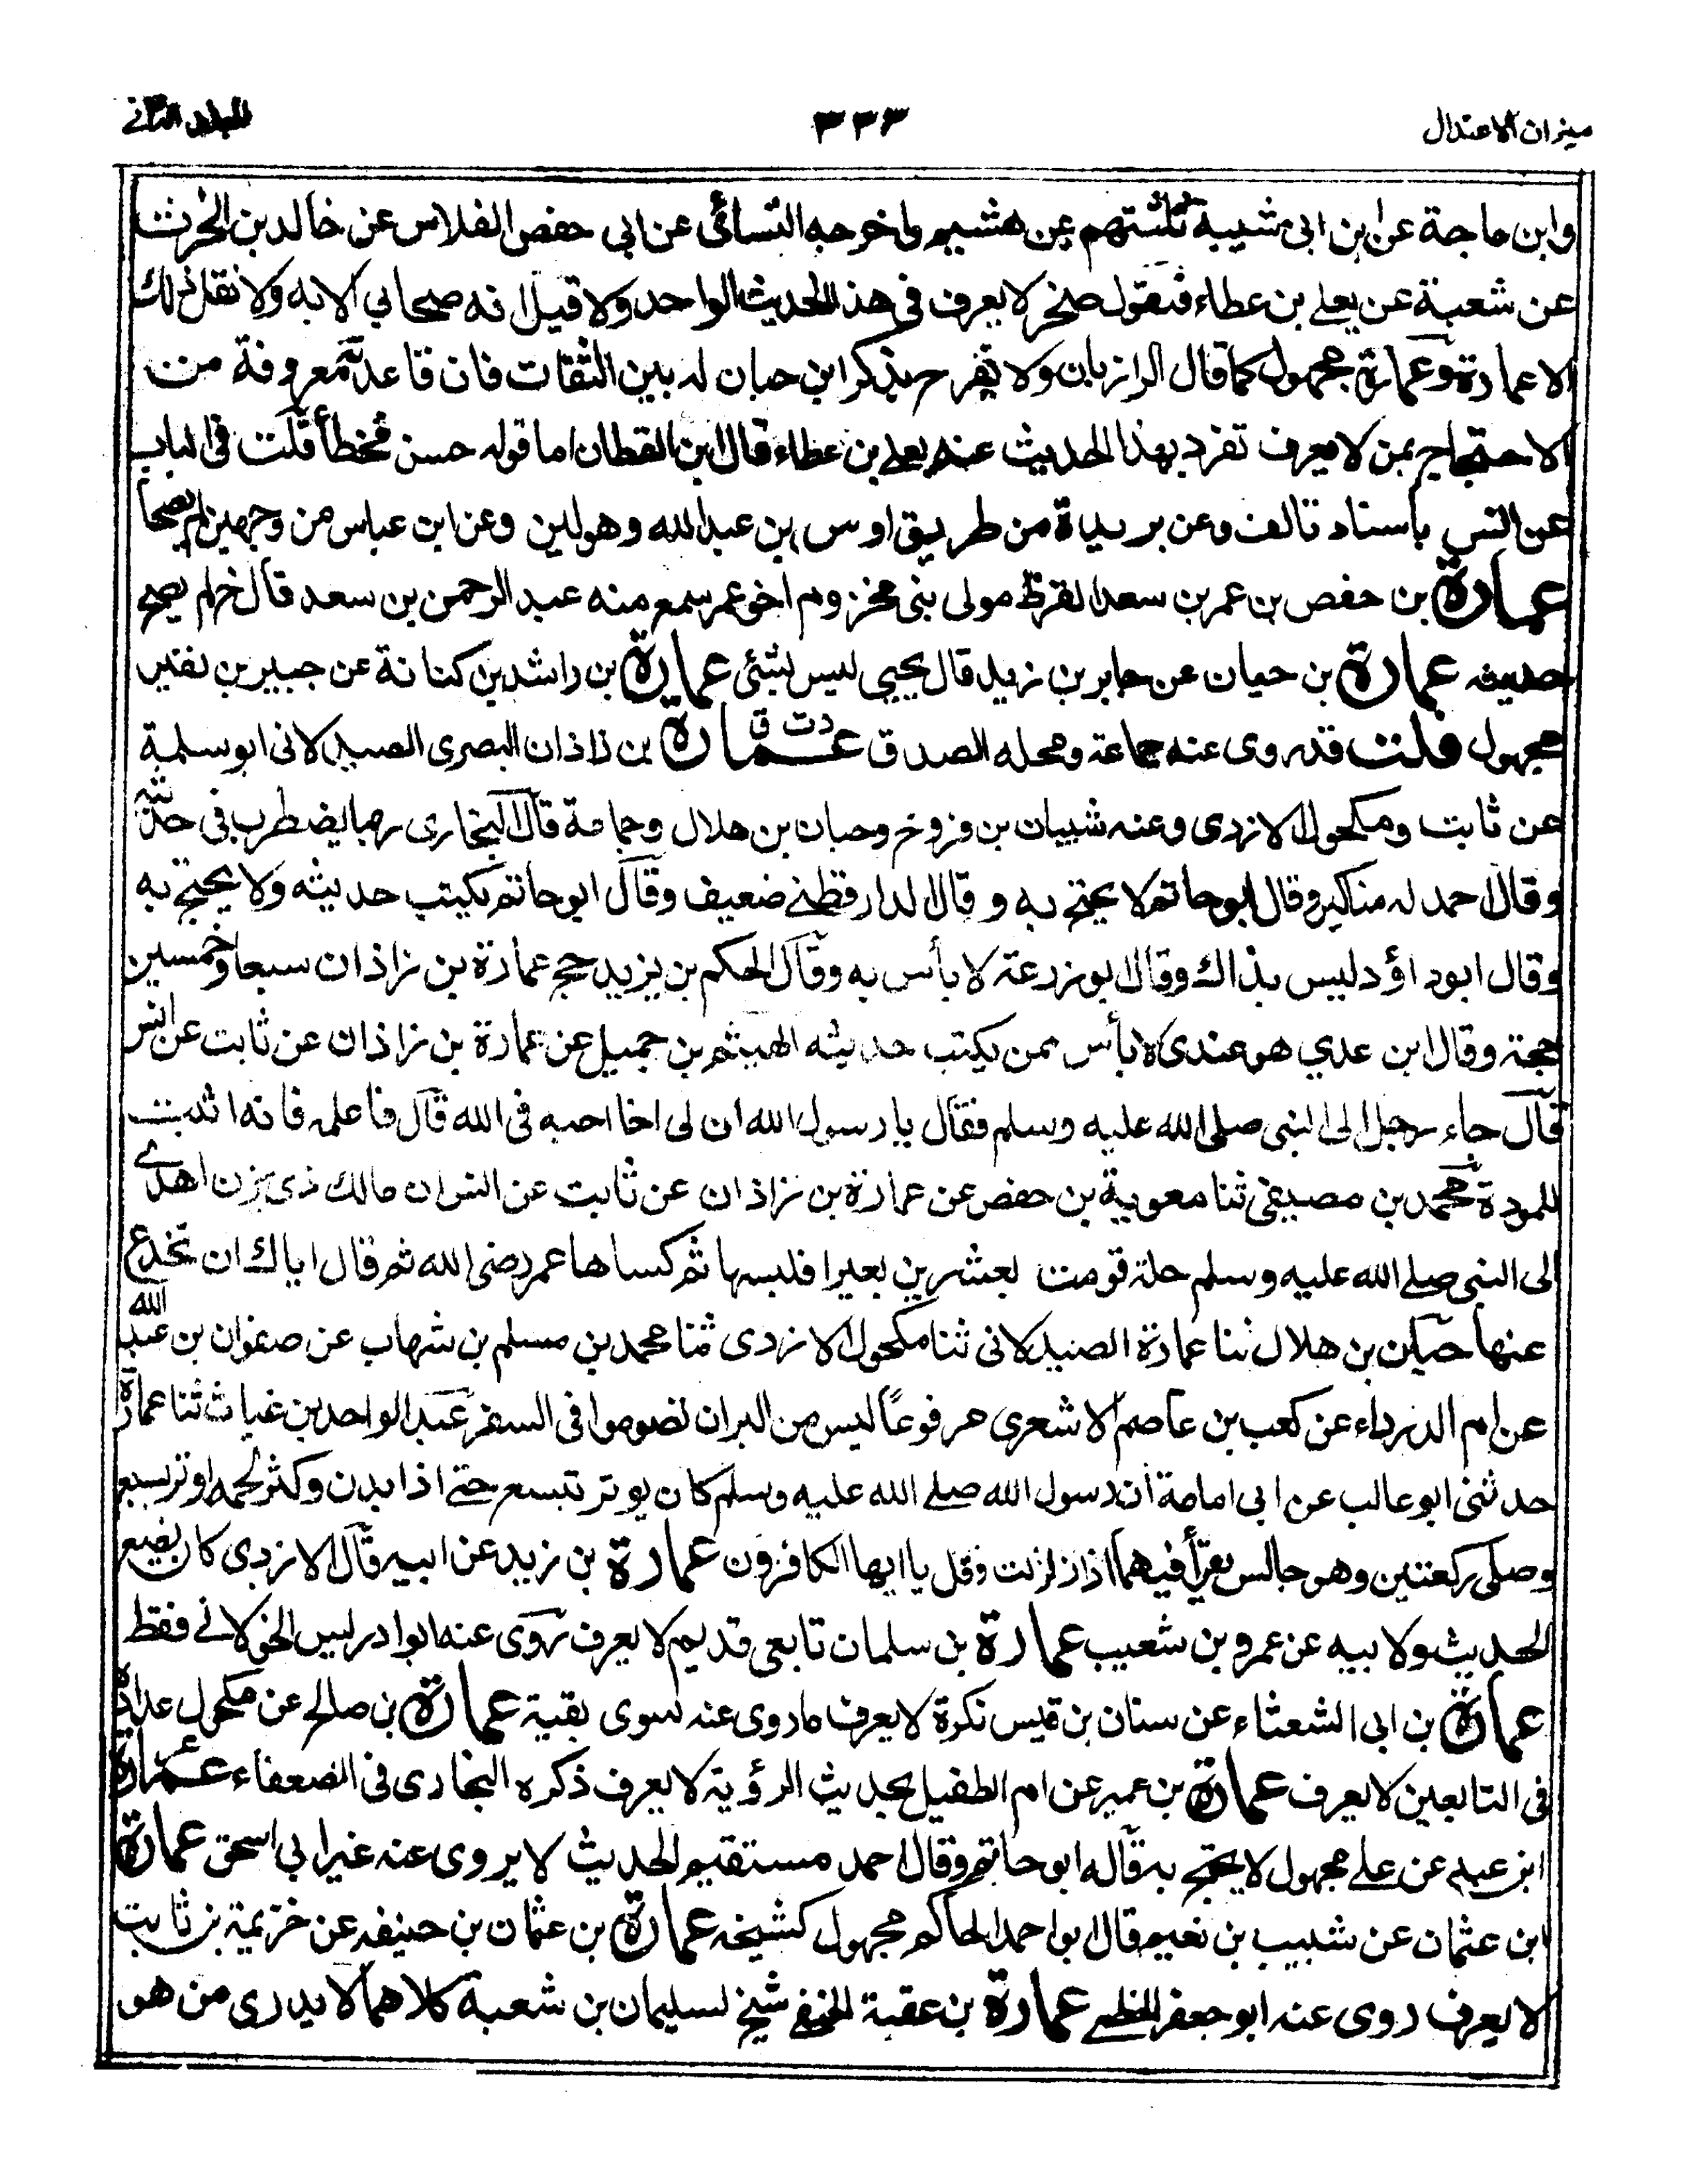 ميزان الاعتدال
٣٣٣
المجلد الثاني
وابن ماجة عن ابن ابى شيبة ثلثتهم عن هشيم واخرجه النسائى عن ابي حفص الفلاس عن خالد بن الحرث
عن شعبة عن يعلے بن عطاء فنقول صخر لا يعرف فى هذا الحديث الواحد ولا قيل انه صحابي الا به ولا نقل ذلك
الا عمارة وعمارة مجهول كما قال الرازيان ولا يفرح بذكر ابن حبان له بين الثقات فان قاعدته معروفة من
الاحتجاج بمن لا يعرف تفرد بهذا الحديث عنه يعلے بن عطاء قال ابن القطان اما قوله حسن فخطأ قلت فى الباب
عن انس باسناد تالف وعن بريدة من طريق اوس بن عبد الله وهو لين وعن ابن عباس من وجهين لم يصحا
عمارة بن حفص بن عمر بن سعد القرظ مولى بنى مخزوم اخو عمر سمع منه عبد الرحمن بن سعد قال خ لم يصح
حديثه عمارة بن حيان عن جابر بن زيد قال يحيى ليس بشئ عمارة بن راشد بن كنانة عن جبير بن نفير
مجهول قلت قد روى عنه جماعة ومحله الصدق عمارة د ت ق بن زاذان البصرى الصيدلانى ابو سلمة
عن ثابت ومكحول الازدى وعنه شيبان بن فروخ وحبان بن هلال وجماعة قال البخارى ربما يضطرب فى حديثه
وقال احمد له مناكير وقال ابو حاتم لا يحتج به وقال الدارقطنے ضعيف وقال ابو حاتم يكتب حديثه ولا يحتج به
وقال ابو داؤد ليس بذاك وقال ابو زرعة لا بأس به وقال الحكم بن يزيد حج عمارة بن زاذان سبعا وخمسين
حجة وقال ابن عدي هو عندى لا بأس بمن يكتب حديثه الهيثم بن جميل عن عمارة بن زاذان عن ثابت عن انس
قال جاء رجل الى النبى صلى الله عليه وسلم فقال يا رسول الله ان لى اخا احبه فى الله قال فاعلمه فانه اثبت
للمودة محمد بن مصيفى ثنا معوية بن حفص عن عمارة بن زاذان عن ثابت عن انس ان مالك ذى يزن اهدے
الى النبى صلے الله عليه وسلم حلة قومت بعشرين بعيرا فلبسها ثم كساها عمر رضى الله ثم قال اياك ان تخدع
عنها حبان بن هلال ثنا عمارة الصيدلانى ثنا مكحول الازدى ثنا محمد بن مسلم بن شهاب عن صفوان بن عبد الله
عن ام الدرداء عن كعب بن عاصم الاشعرى مرفوعًا ليس من البران تصوموا فى السفر عبد الواحد بن غياث ثنا عمارة
حدثنى ابو غالب عن ابى امامة ان رسول الله صلے الله عليه وسلم كان يوتر بتسع حتے اذا بدن وكثر لحمه اوتر بسبع
وصلى ركعتين وهو جالس يقرأ فيهما اذا زلزلت وقل يا ايها الكافرون عمارة بن زيد عن ابيه قال الازدى كان يضع
الحديث ولابيه عن عمرو بن شعيب عمارة بن سلمان تابعى قديم لا يعرف روى عنه ابو ادريس الخولانے فقط
عمارة بن ابى الشعثاء عن سنان بن قيس نكرة لا يعرف ما روى عنه سوى بقية عمارة بن صالح عن مكحول عداده
فى التابعين لا يعرف عمارة بن عمير عن ام الطفيل بحديث الرؤية لا يعرف ذكره البخارى فى الضعفاء عمارة
ابن عبد عن علے مجهول لا يحتج به قاله ابو حاتم وقال احمد مستقيم الحديث لا يروى عنه غير ابي اسحق عمارة
ابن عثمان عن شبيب بن نعيم قال ابو احمد الحاكم مجهول كشيخه عمارة بن عثمان بن حنيفه عن خزيمة بن ثابت
لا يعرف روى عنه ابو جعفر الخطمے عمارة بن عقبة الحنفے شيخ لسليمان بن شعبة كلاهما لا يدرى من هو